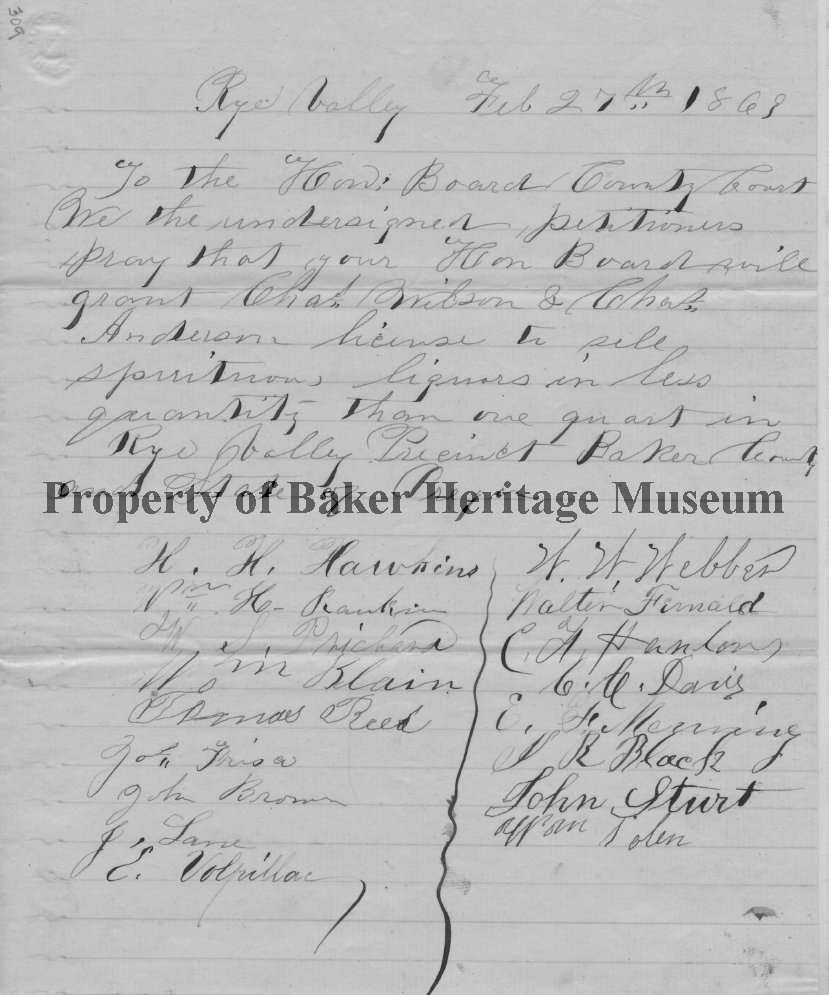 309
Rye Valley Feb 27th 1863
To the Hon: Board County Court
We the undersigned, petitioners
pray that your Hon Board will
grant Chas Wilson & Chas
Anderson license to sell
spirituous liquors in less
quantity than one quart in
Rye Valley Precinct Baker County
and State of
Property of Baker Heritage Museum
H. H. Hawkins
Wm H. Rankin
W. S. Prichard
Wm Blain
Thomas Reed
Jos Frisa
John Brown
J. Lane
E. Volpillac
W. W. Webber
Walter Fernald
C. H. Hanlons
C. C. Davis
E. F. Morning
J R Black
John Sturt
Wm Tolen